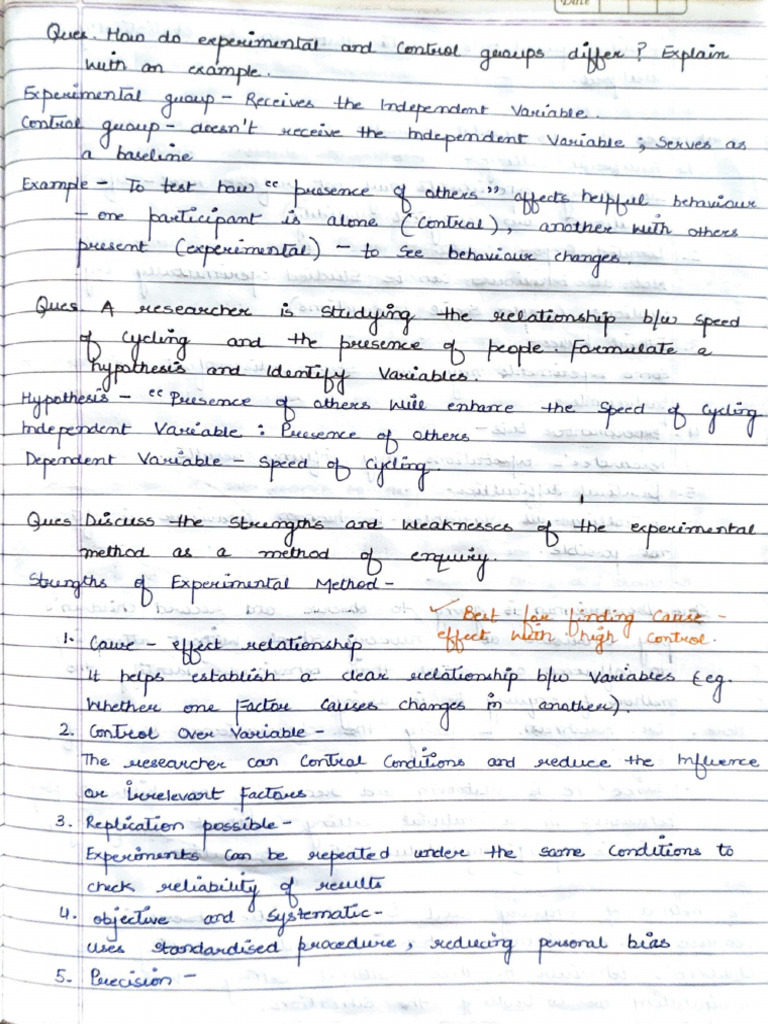 Date
Ques. How do experimental and control groups differ? Explain
with an example.
Experimental group - Receives the Independent Variable.
Control group - doesn't receive the Independent Variable; Serves as
a baseline
Example - To test how "presence of others" affects helpful behaviour
- one participant is alone (control), another with others
present (experimental) - to see behaviour changes.
Ques. A researcher is studying the relationship b/w speed
of cycling and the presence of people. Formulate a
hypothesis and identify variables.
Hypothesis - "Presence of others will enhance the speed of cycling
Independent Variable : Presence of others
Dependent Variable - speed of cycling.
Ques Discuss the strengths and weaknesses of the experimental
method as a method of enquiry.
Strengths of Experimental Method -
✓ Best for finding cause -
effect with high control.
1. Cause - effect relationship
it helps establish a clear relationship b/w variables (eg.
whether one factor causes changes in another).
2. Control over Variable -
The researcher can control conditions and reduce the influence
or irrelevant factors
3. Replication possible -
Experiments can be repeated under the same conditions to
check reliability of results
4. objective and systematic -
uses standardised procedure, reducing personal bias
5. Precision -